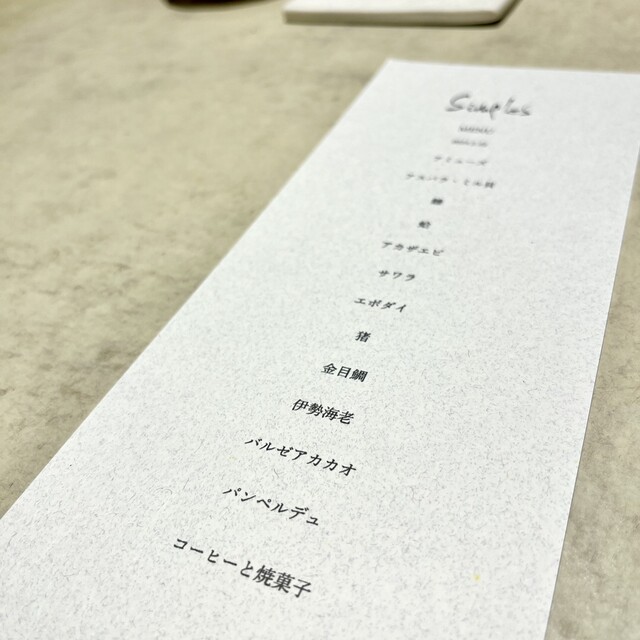 Simples
MENU
アミューズ
アカザエビ
サワラ
エボダイ
猪
金目鯛
伊勢海老
バルゼアカカオ
パンペルデュ
コーヒーと焼菓子